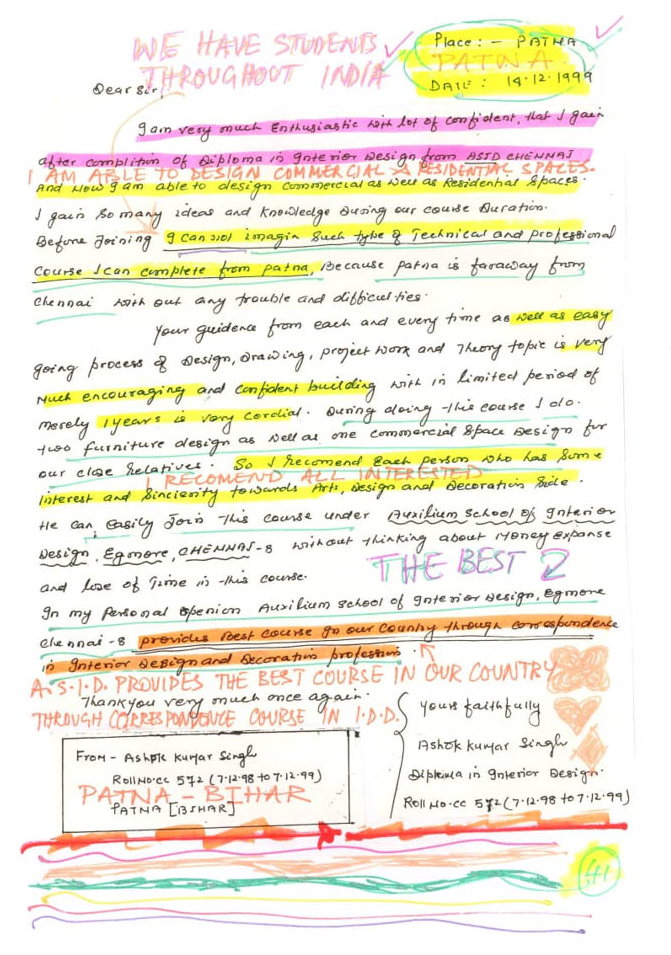 WE HAVE STUDENTS
THROUGHOUT INDIA
Place:- PATNA
PATNA
DATE: 14.12.1999
Dear Sir,
I am very much Enthusiastic with lot of confident, that I gain
after complition of Diploma in Interior Design from ASID CHENNAI
I AM ABLE TO DESIGN COMMERCIAL & RESIDENTIAL SPACES.
And Now I am able to design Commercial as well as Residential Spaces.
I gain So many ideas and Knowledge During our course Duration.
Before Joining I can not imagin Such type of Technical and professional
Course I can complete from patna, Because patna is faraway from
Chennai with out any trouble and difficulties.
Your guidence from each and every time as well as easy
going process of Design, Drawing, project work and Theory topic is very
Much encouraging and confident building with in limited period of
merely 1 years is very cordial. During doing this course I do.
two furniture design as well as one commercial Space Design for
our close Relatives. So I recomend Each person who has Some
I RECOMEND ALL INTERESTED
interest and Sinciesity towards Arts, Design and Decoration Side.
He can, easily Join this course under Auxilium School of Interior
Design, Egmore, CHENNAI-8 without thinking about Money Expanse
THE BEST 2
and lose of Time in this course.
In my Personal Openion Auxilium School of Interior Design, Egmore
Chennai-8 provides Best course In our Country through correspondence
in Interior Design and Decoration profession.
A.S.I.D. PROVIDES THE BEST COURSE IN OUR COUNTRY
Thankyou very much once again.
THROUGH CORRESPONDENCE COURSE IN I.D.D.
Yours faithfully
Ashok Kumar Singh
Diploma in Interior Design.
Roll No.cc 572 (7.12.98 to 7.12.99)
From - Ashok Kumar Singh
Roll No.cc 572 (7.12.98 to 7.12.99)
PATNA - BIHAR
PATNA [BIHAR]